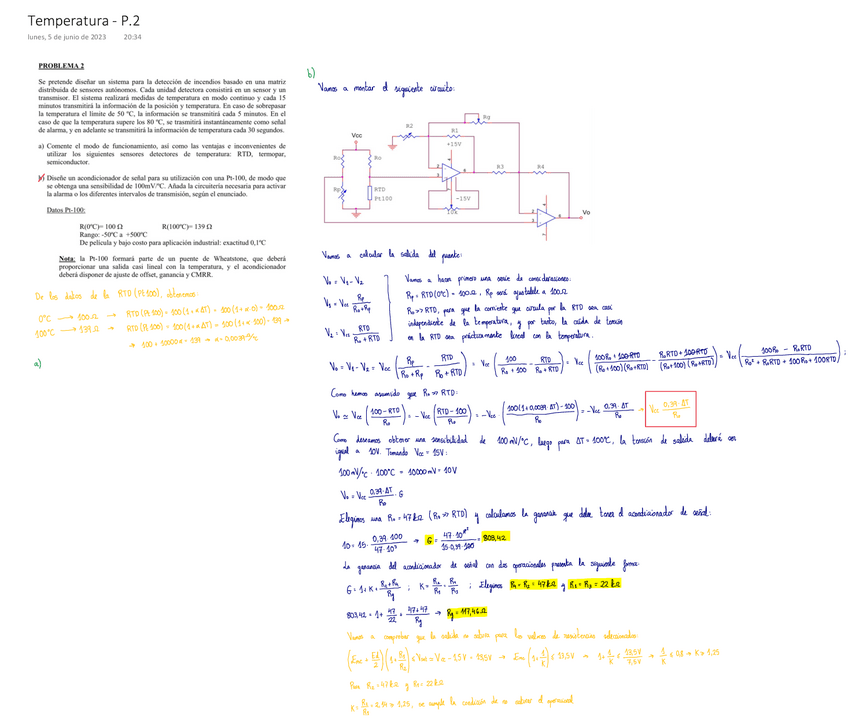 Temperatura - P.2
lunes, 5 de junio de 2023 20:34
PROBLEMA 2
Se pretende diseñar un sistema para la detección de incendios basado en una matriz
distribuida de sensores autónomos. Cada unidad detectora consistirá en un sensor y un
transmisor. El sistema realizará medidas de temperatura en modo continuo y cada 15
minutos transmitirá la información de la posición y temperatura. En caso de sobrepasar
la temperatura el límite de 50 ºC, la información se transmitirá cada 5 minutos. En el
caso de que la temperatura supere los 80 ºC, se transmitirá instantáneamente como señal
de alarma, y en adelante se transmitirá la información de temperatura cada 30 segundos.
a) Comente el modo de funcionamiento, así como las ventajas e inconvenientes de
utilizar los siguientes sensores detectores de temperatura: RTD, termopar,
semiconductor.
b) Diseñe un acondicionador de señal para su utilización con una Pt-100, de modo que
se obtenga una sensibilidad de 100mV/ºC. Añada la circuitería necesaria para activar
la alarma o los diferentes intervalos de transmisión, según el enunciado.
Datos Pt-100:
R(0ºC)= 100 Ω R(100ºC)= 139 Ω
Rango: -50ºC a +500ºC
De película y bajo costo para aplicación industrial: exactitud 0,1ºC
Nota: la Pt-100 formará parte de un puente de Wheatstone, que deberá
proporcionar una salida casi lineal con la temperatura, y el acondicionador
deberá disponer de ajuste de offset, ganancia y CMRR.
De los datos de la RTD (Pt100), obtenemos:
0ºC → 100Ω → RTD (Pt 100) = 100 (1+α ΔT) = 100 (1+α·0) = 100Ω
100ºC → 139Ω → RTD (Pt 100) = 100 (1+αΔT) = 100 (1+α·100) = 139 →
→ 100 + 10000α = 139 → α = 0.0039 º/C
a)
b)
Vamos a montar el siguiente circuito:
Vcc
R2
Rg
R1
+15V
Ro
Ro
R3
R4
Rp
RTD
Pt100
-15V
10k
Vo
Vamos a calcular la salida del puente:
V₀ = V₁ - V₂
V₁ = Vcc Rp/(R₀+Rp)
V₂ = Vcc RTD/(R₀+RTD)
Vamos a hacer primero una serie de consideraciones:
Rp = RTD (0ºC) = 100Ω, Rp será ajustable a 100Ω
R₀ >> RTD, para que la corriente que circula por la RTD sea casi
independiente de la temperatura, y por tanto, la caída de tensión
en la RTD sea prácticamente lineal con la temperatura.
V₀ = V₁ - V₂ = Vcc (Rp/(R₀+Rp) - RTD/(R₀+RTD)) = Vcc (100/(R₀+100) - RTD/(R₀+RTD)) = Vcc ((100R₀ + 100·RTD)/((R₀+100)(R₀+RTD)) - (R₀RTD + 100·RTD)/((R₀+100)(R₀+RTD))) = Vcc (100R₀ - R₀RTD)/(R₀² + R₀RTD + 100R₀ + 100RTD) ;
Como hemos asumido que R₀ >> RTD:
V₀ ≃ Vcc ((100-RTD)/R₀) = -Vcc ((RTD-100)/R₀) = -Vcc ((100(1+0,0039·ΔT) - 100)/R₀) = -Vcc 0,39·ΔT/R₀ → Vcc 0,39·ΔT/R₀
Como deseamos obtener una sensibilidad de 100 mV/ºC, luego para ΔT = 100ºC, la tensión de salida deberá ser
igual a 10V. Tomando Vcc = 15V:
100mV/ºC · 100ºC = 10000mV = 10V
V₀ = Vcc 0,39·ΔT/R₀ · G
Elegimos una R₀ = 47kΩ (R₀ >> RTD) y calculamos la ganancia que debe tener el acondicionador de señal:
10 = 15 · 0,39·100/47·10³ → G = 803,42
La ganancia del acondicionador de señal con dos operacionales presenta la siguiente forma:
; Elegimos R₁ = R₄ = 47kΩ y R₂ = R₃ = 22kΩ
803,42 = 1 + 47/22 + (47+47)/Rg → Rg = 117,46Ω
Vamos a comprobar que la salida no satura para los valores de resistencias seleccionados: